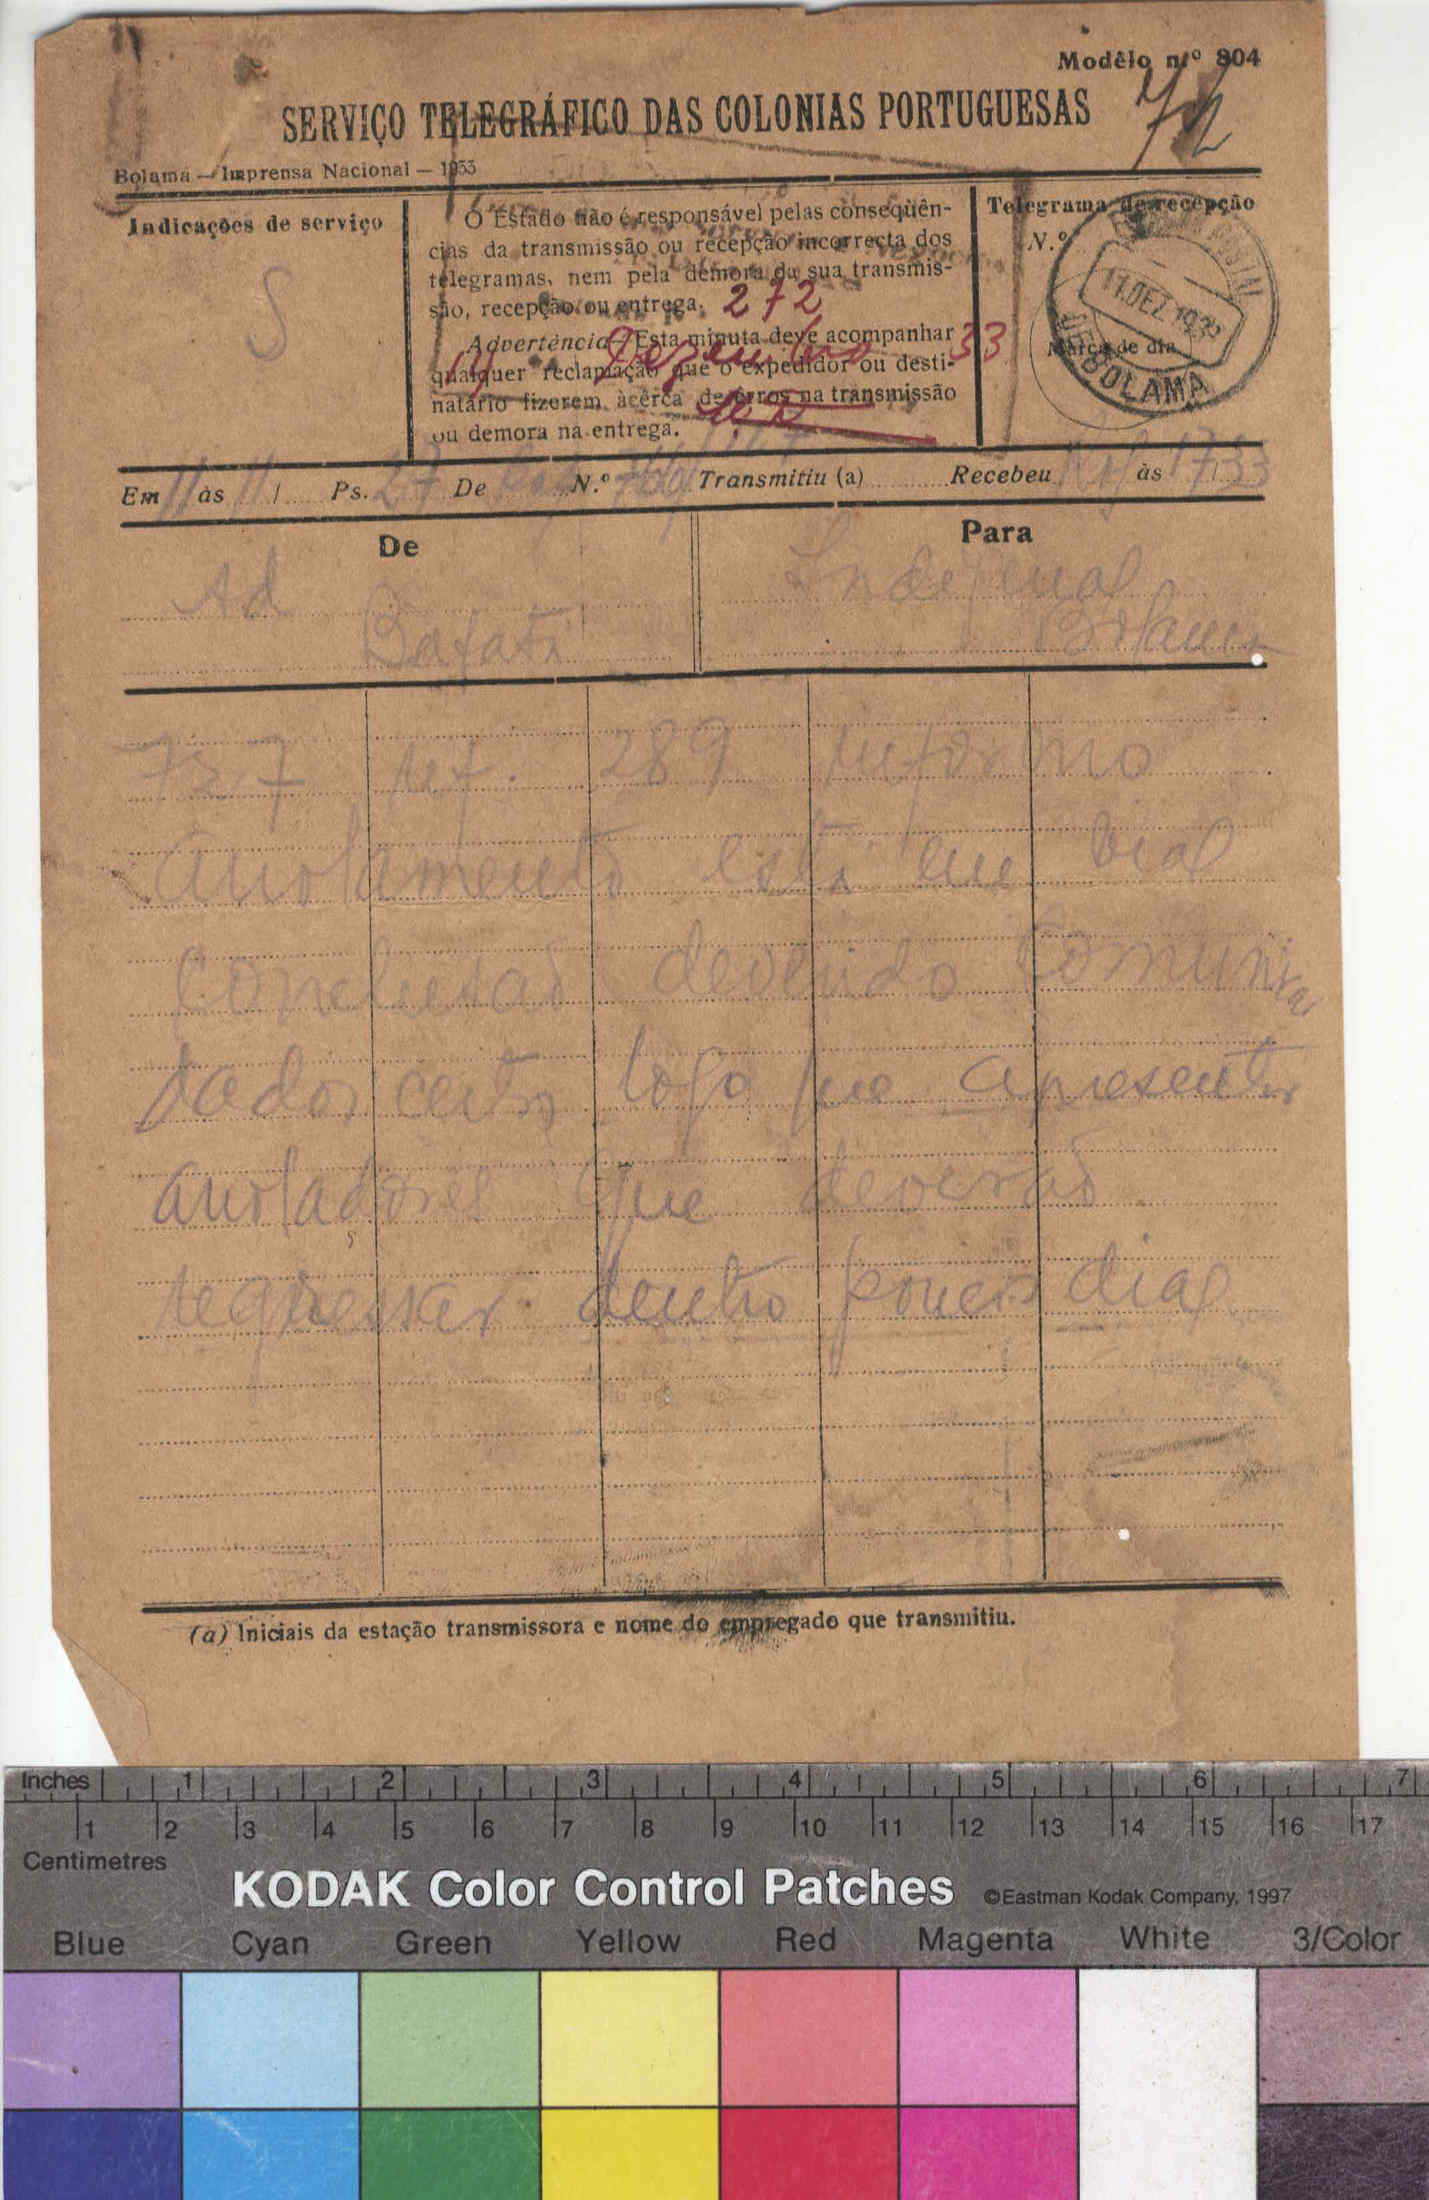 Modêlo n.º 804
SERVIÇO TELEGRÁFICO DAS COLONIAS PORTUGUESAS
Bolama — Imprensa Nacional — 1933
Indicações de serviço
S
O Estado não é responsável pelas conseqüên-
cias da transmissão ou recepção incorrecta dos
telegramas, nem pela demora da sua transmis-
são, recepção ou entrega.
272
Advertência: Esta minuta deve acompanhar
qualquer reclamação que o expedidor ou desti-
natário fizerem àcêrca de erros na transmissão
ou demora na entrega.
Dezembro 33
Telegrama de recepção
N.º
Marca de dia
11.DEZ.1933
BOLAMA
Em 11 às 11 Ps. 27 De N.º Transmitiu (a) Recebeu às 1733
De
Para
Ad
Bafatá
Indigenas
Bolama
727 ref. 289 informo
arrolamento está em vias
conclusão devendo comunicar
dados certos logo que apresentes
arroladores que deverão
regressar dentro poucos dias
(a) Iniciais da estação transmissora e nome do empregado que transmitiu.
Inches 1 2 3 4 5 6 7
1 2 3 4 5 6 7 8 9 10 11 12 13 14 15 16 17
Centimetres
KODAK Color Control Patches ©Eastman Kodak Company, 1997
Blue Cyan Green Yellow Red Magenta White 3/Color